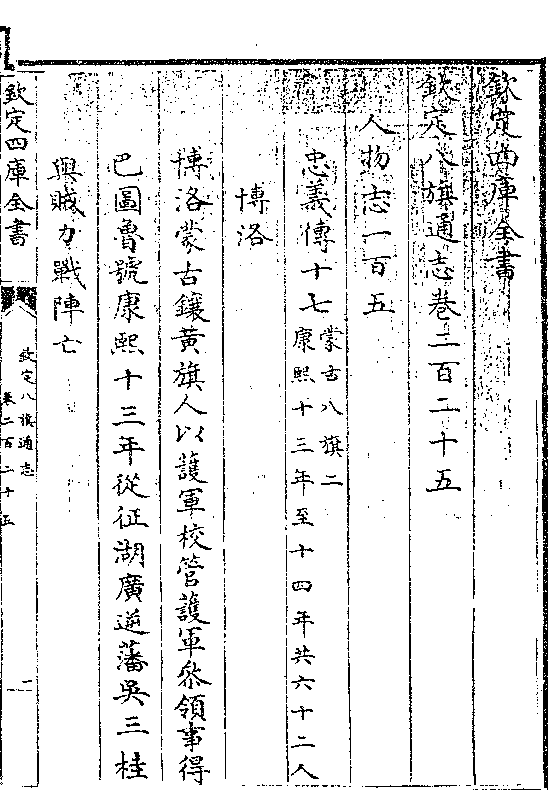 欽定四庫全書
欽定八旗通志卷二百二十五
人物志一百五
忠義傳十七
蒙古八旗二
康熙十三年至十四年共六十二人
博洛
博洛蒙古鑲黃旗人以護軍校管護軍叅領事得
巴圖魯號康熙十三年從征湖廣逆藩吳三桂
與賊力戰陣亡
欽定四庫全書
欽定八旗通志
卷二百二十五
一